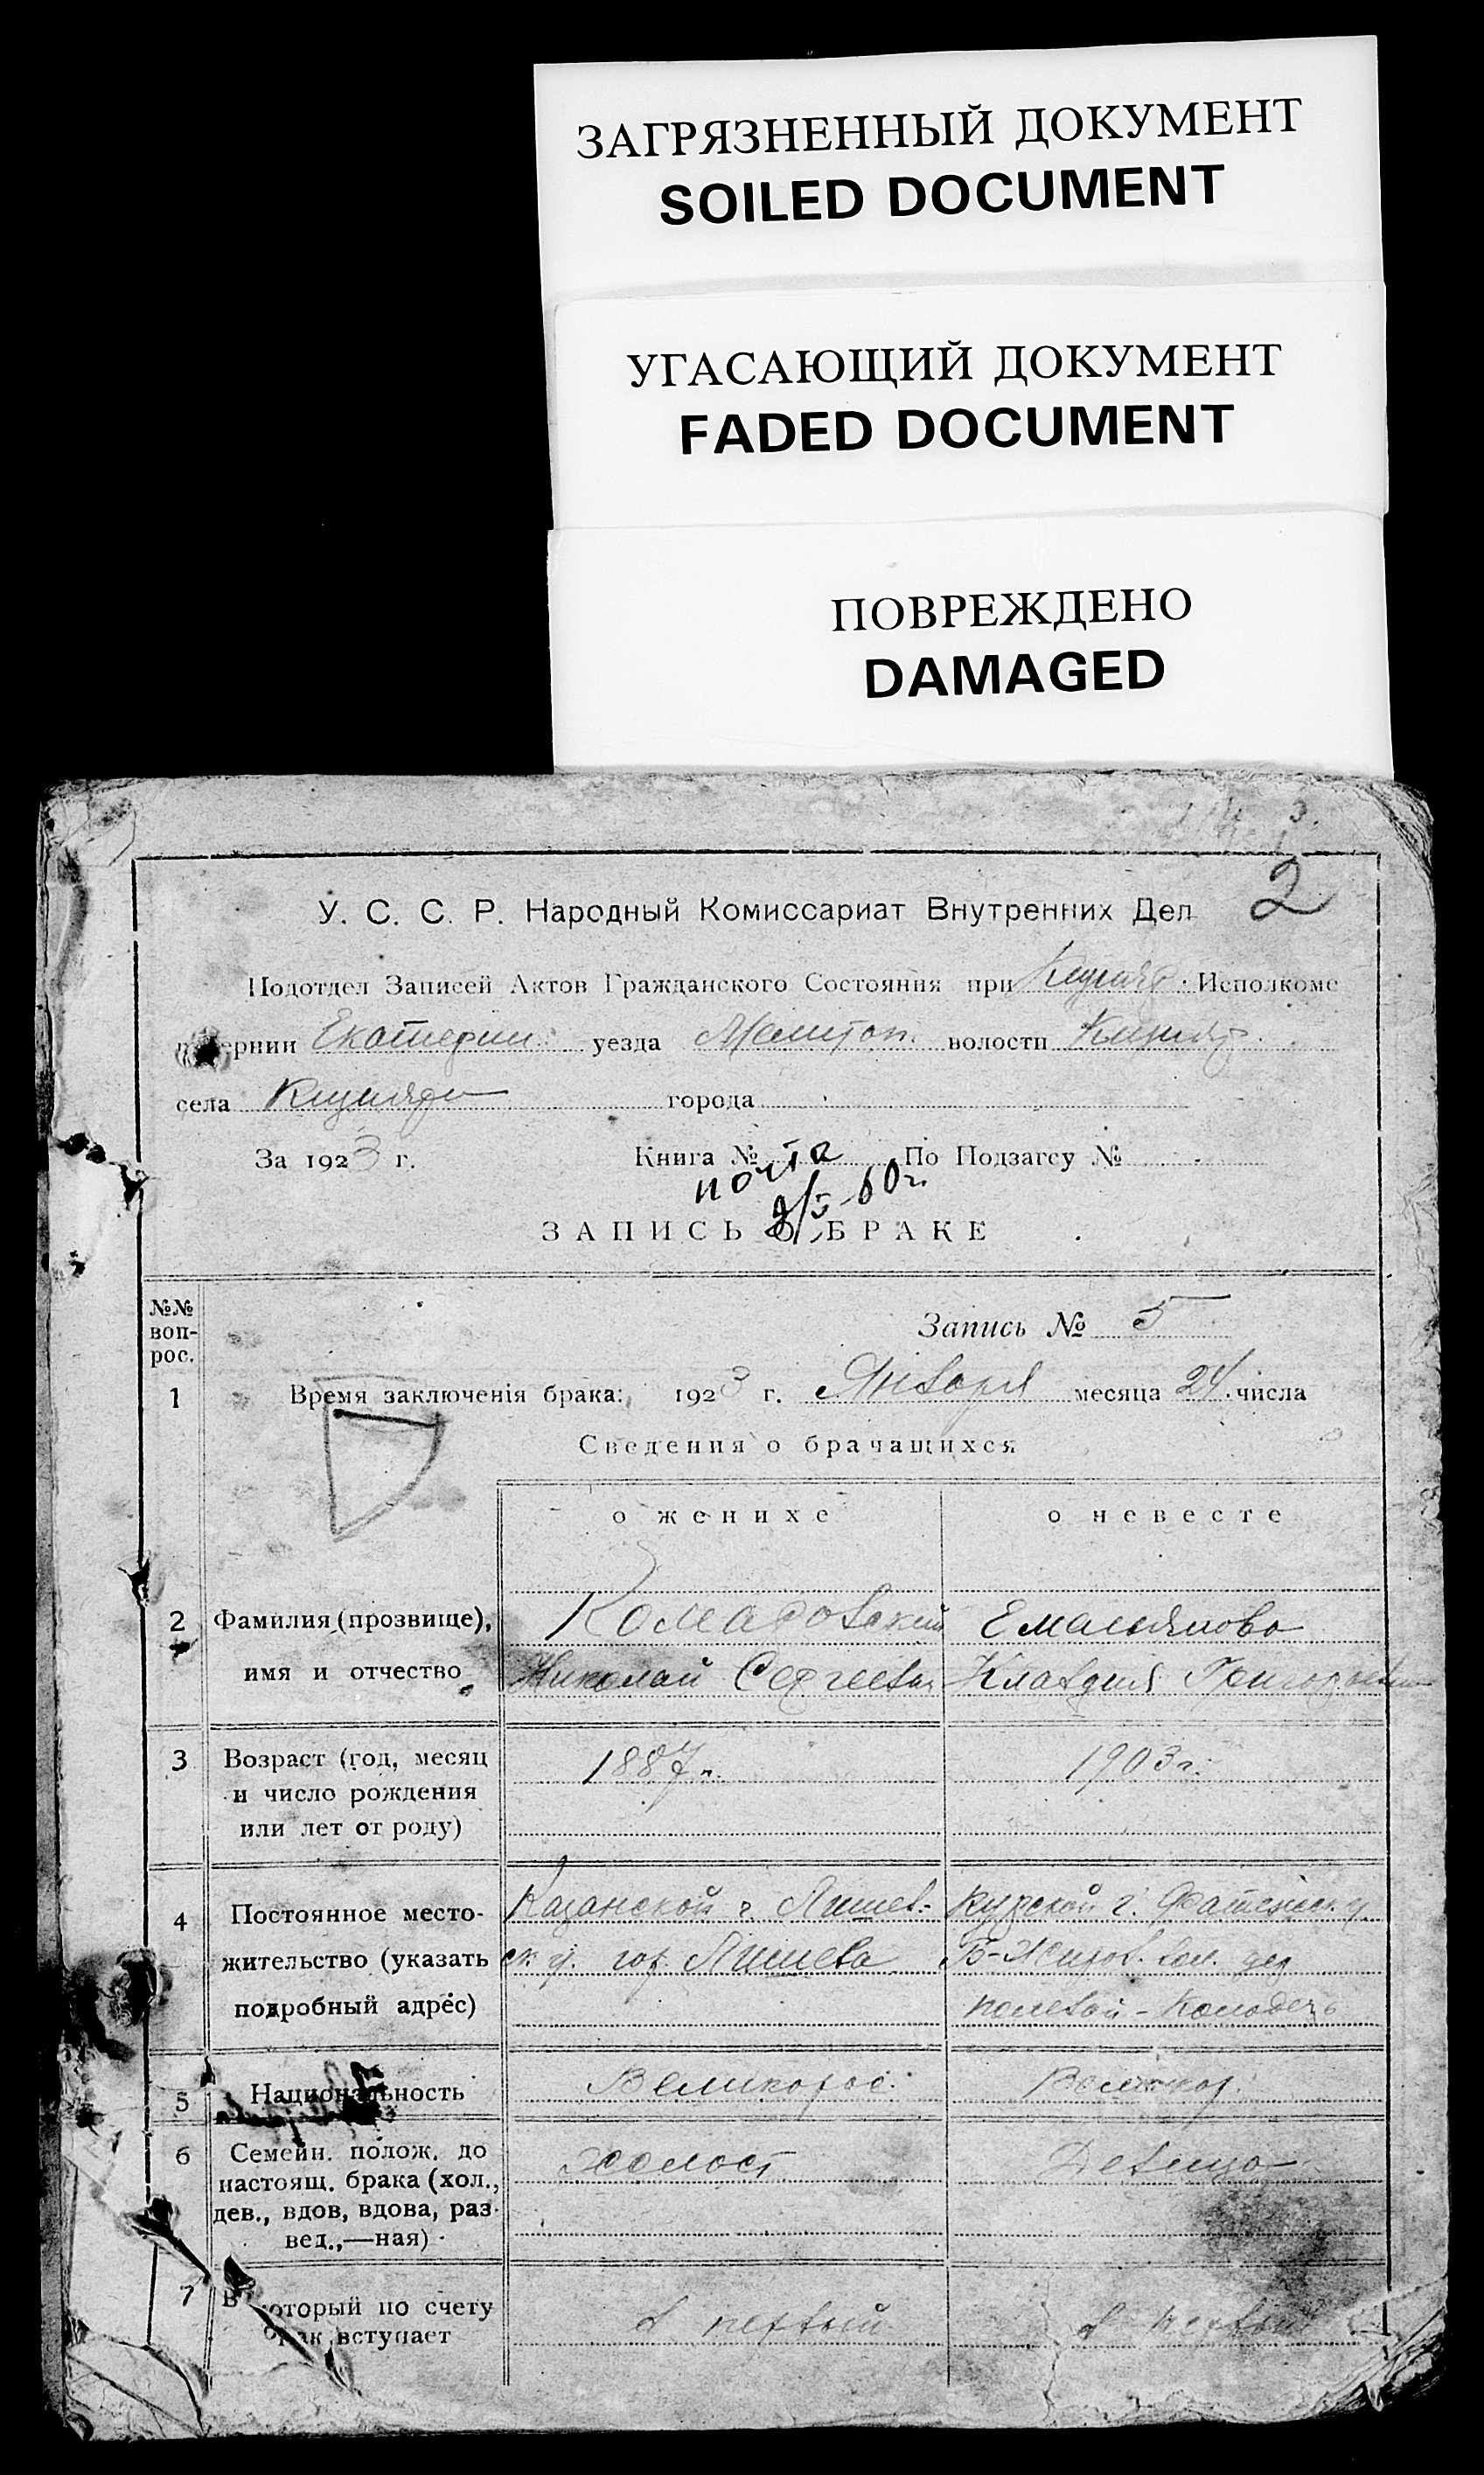 ЗАГРЯЗНЕННЫЙ ДОКУМЕНТ
SOILED DOCUMENT
УГАСАЮЩИЙ ДОКУМЕНТ
FADED DOCUMENT
ПОВРЕЖДЕНО
DAMAGED
2
У. С. С. Р. Народный Комиссариат Внутренних Дел
Подотдел Записей Актов Гражданского Состояния при Исполкоме
губернии Екатерин. уезда Мелитоп. волости
села города
За 1923 г. Книга № По Подзагсу №
почта
2/5-60г.
ЗАПИСЬ О БРАКЕ
№№ вопрос.
Запись № 5
1 Время заключенія брака: 1923 г. Января месяца 24 числа
Сведения о брачащихся
о женихе о невесте
2 Фамилия (прозвище), Комаровский Емельянова
имя и отчество Николай Сергеевич Клавдия Григорьевна
3 Возраст (год, месяц 1887г. 1903г.
и число рождения
или лет от роду)
4 Постоянное место- Казанской г. Лишев- Курской г. Фатежск. у.
жительство (указать ск. у. гор. Лишева Б-Жиров. вол. дер
подробный адрес) Полевой-Колодезь
5 Национальность Великорос. Великор.
6 Семейн. полож. до Холост Девица
настоящ. брака (хол.,
дев., вдов, вдова, раз-
вед.,—ная)
7 В который по счету в первый в первый
брак вступает